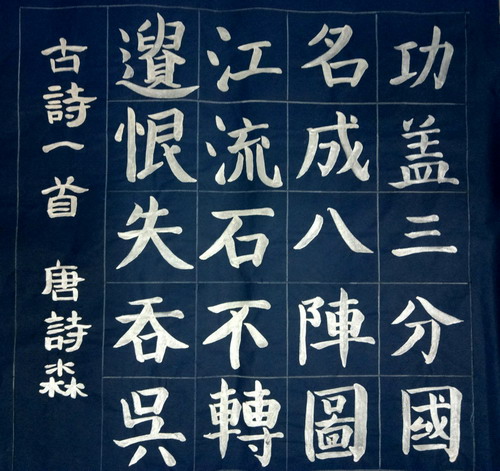 功盖三分國
名成八陣圖
江流石不轉
遺恨失吞吳
古詩一首 唐詩淼